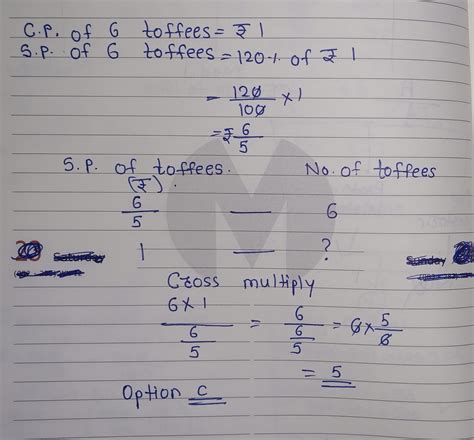 C.P. of 6 toffees = ₹ 1
S.P. of 6 toffees = 120% of ₹ 1
= 120/100 × 1
= ₹ 6/5
S.P. of toffees. No. of toffees
(₹).
6/5 — 6
1 — ?
Saturday Sunday
Cross multiply
6×1 / 6/5 = 6 / 6/5 = 6 × 5/6
= 5
Option C